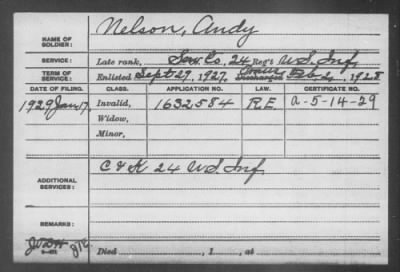 NAME OF SOLDIER: Nelson, Andy
SERVICE: Late rank, Serv. Co. 24 Reg't U.S. Inf.
TERM OF SERVICE: Enlisted Sept. 29, 1927, Discharged Feb. 2, 1928
DATE OF FILING. CLASS. APPLICATION NO. LAW. CERTIFICATE NO.
1929, Jan. 17, Invalid, 1632584 R.E. a-5-14-29
Widow,
Minor,
ADDITIONAL SERVICES: C & K 24 U.S. Inf.
REMARKS:
Died , 1 , at